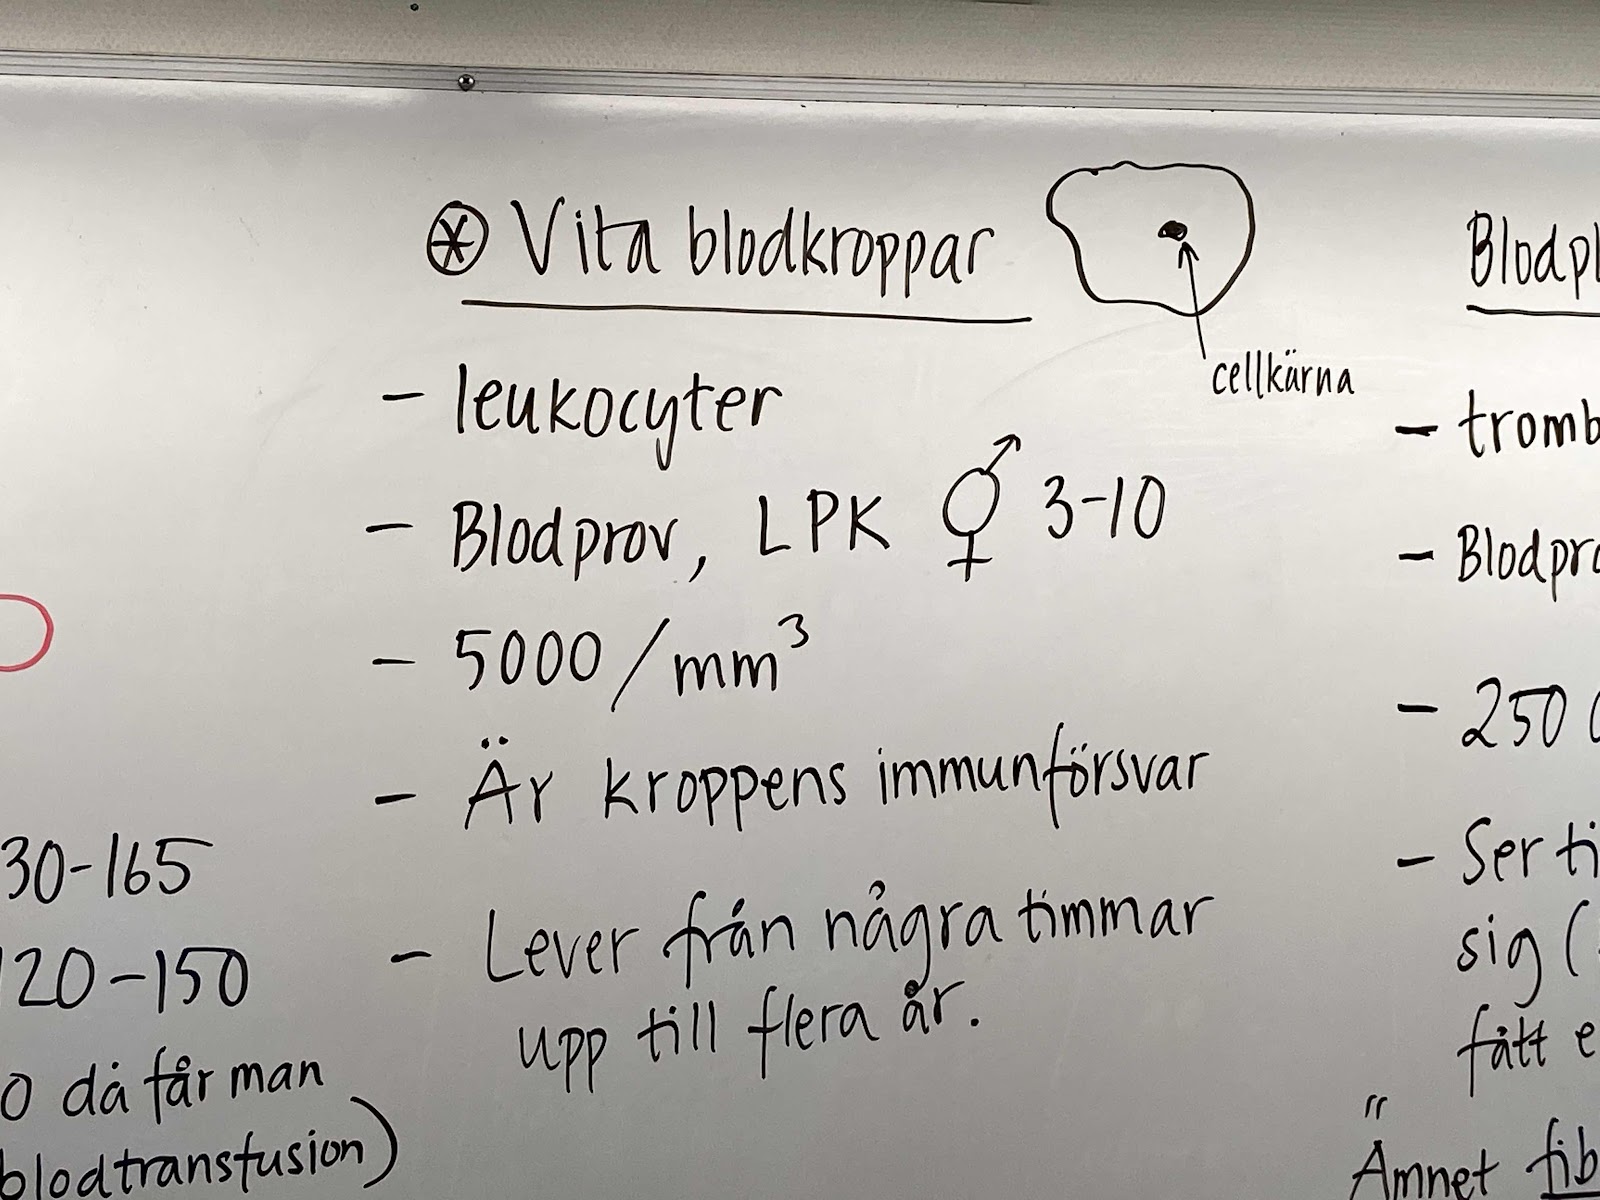 ⊛ Vita blodkroppar
cellkärna
- leukocyter
- Blodprov, LPK ⚥ 3-10
- 5000/mm³
- Är kroppens immunförsvar
- Lever från några timmar
upp till flera år.
30-165
120-150
0 då får man
blodtransfusion)
Blodpl
- tromb
- Blodpro
- 250 0
- Ser ti
sig (
fått e
Ämnet fib